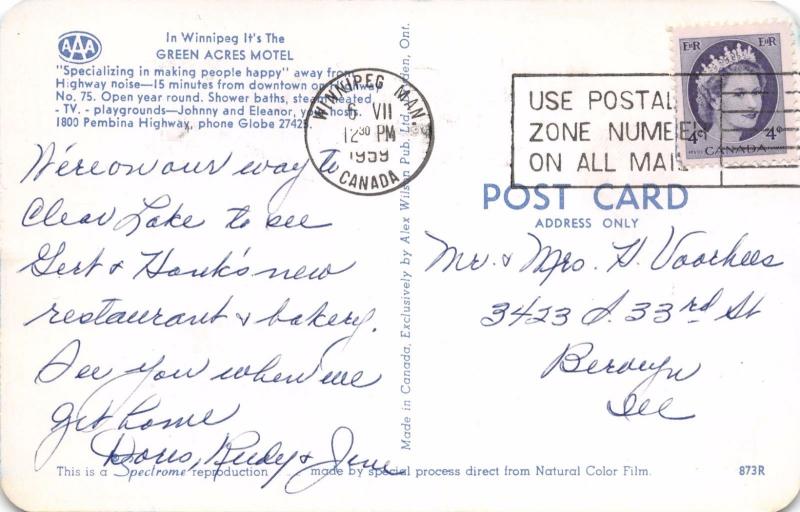 AAA
In Winnipeg It's The
GREEN ACRES MOTEL
"Specializing in making people happy" away from
Highway noise—15 minutes from downtown on Highway
No. 75. Open year round. Shower baths, steam heated,
- TV. - playgrounds—Johnny and Eleanor, your hosts.
1800 Pembina Highway, phone Globe 27425.
We're on our way to
Clear Lake to see
Gert & Hank's new
restaurant & bakery.
See you when we
get home
Doris, Rudy & June
This is a Spectrome reproduction
Made in Canada, Exclusively by Alex Wilson Pub. Ltd., Dryden, Ont.
WINNIPEG MAN.
6 VII
12 30 PM
1959
CANADA
USE POSTAL
ZONE NUMBE
ON ALL MAI
EIIR EIIR
4¢ 4¢
CANADA
POST CARD
ADDRESS ONLY
Mr. & Mrs. H. Voorhees
3423 S. 33rd St
Berwyn
Ill
made by special process direct from Natural Color Film.
873R